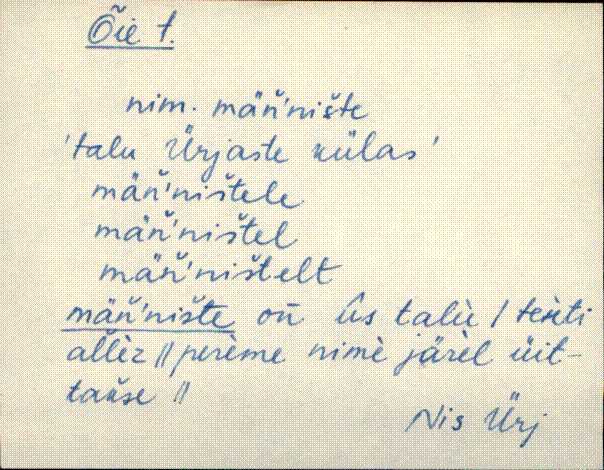 Õie t.
nim. män̆'nište
'talu Ürjaste külas'
män̆'ništele
män̆'ništel
män̆'ništelt
män̆'nište on̄ ǖs talù /
allèz // perème nimè järèl üit-
takse //
Nis Ürj